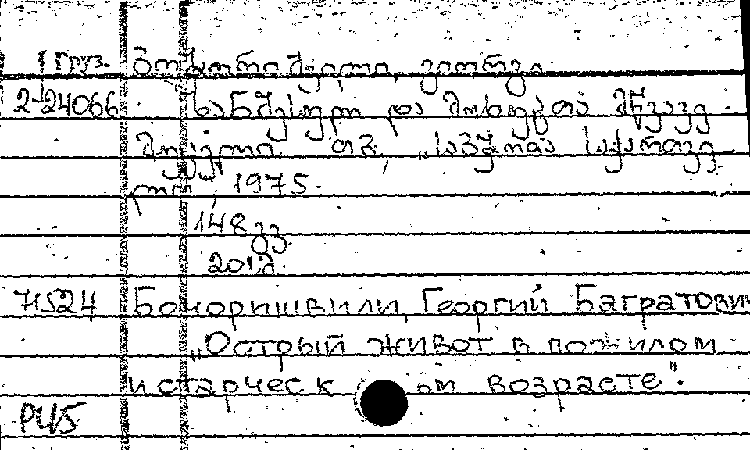 Груз. ბოჭორიშვილი, გიორგი
2-24066 ხანშესულ და მოხუცთა მწვავე
მუცელი. თბ., „საბჭოთა საქართვე
ლო", 1975.
148 გვ.
7524 Бочоришвили, Георгий Багратович
„Острый живот в пожилом
и старческ ом возрасте".